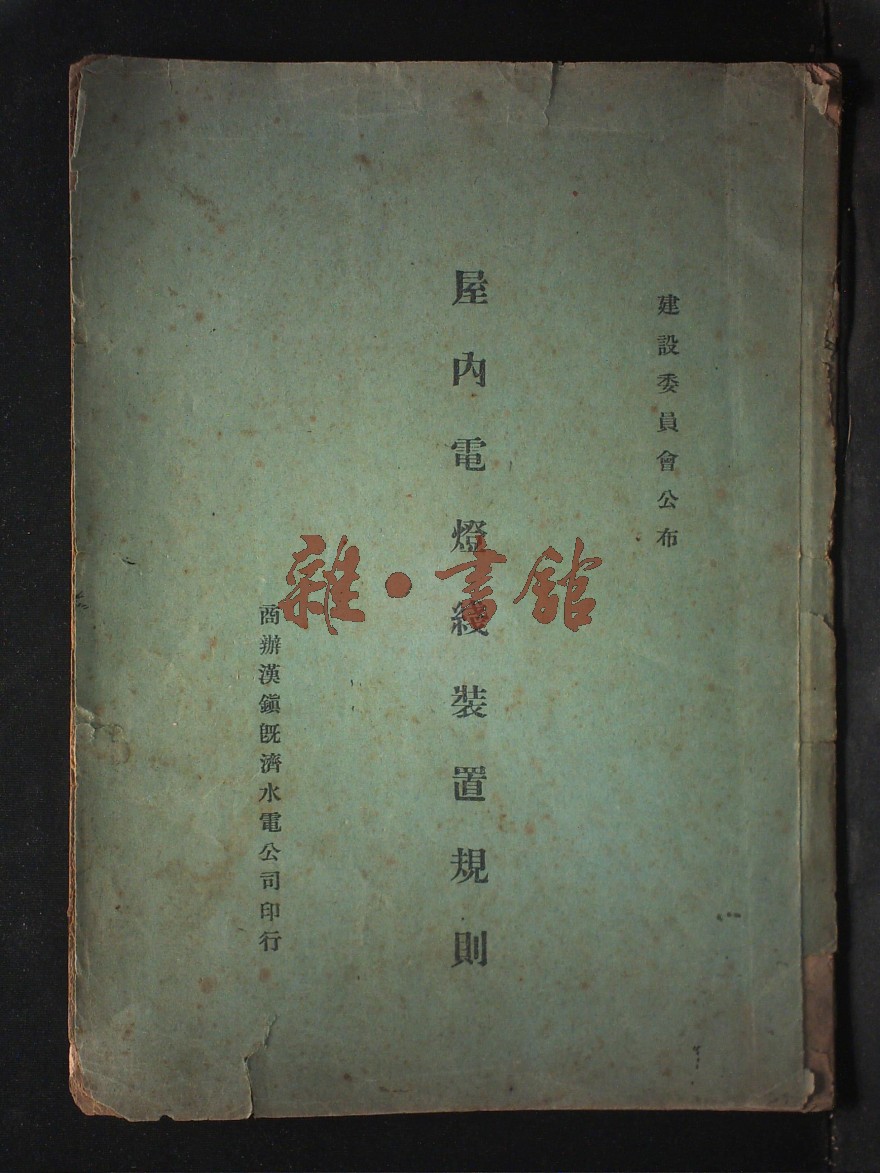 建設委員會公布
屋內電燈綫裝置規則
商辦漢鎭旣濟水電公司印行
雜·書館